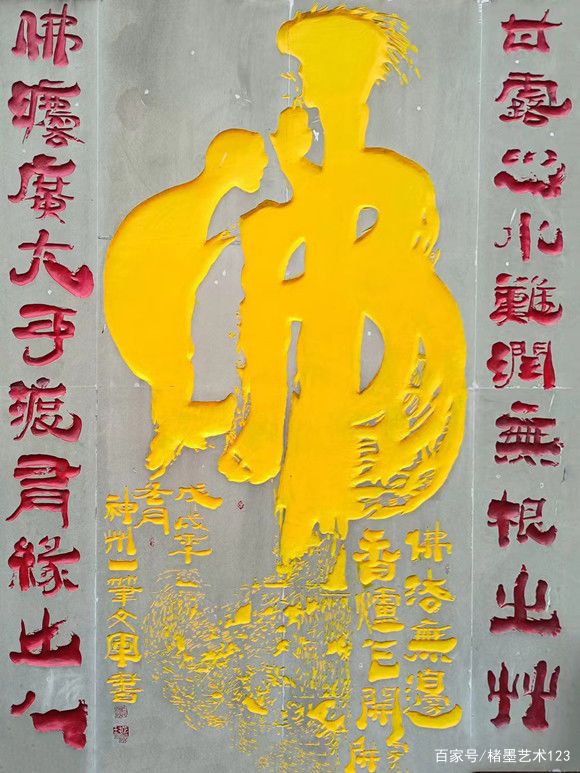 甘露之水難潤無根之艸
佛
佛法無邊
香爐自開屏
戊戌年
春月
神州一筆文軍書
佛廣大緣之人
百家号/楮墨艺术123